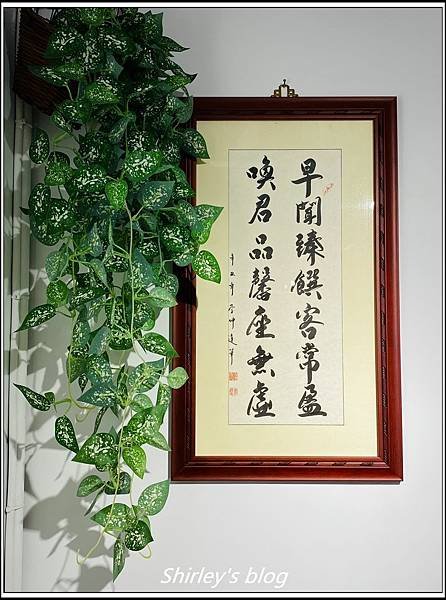 早聞臻饌客常盈
喚君品馨座無虛
Shirley's blog